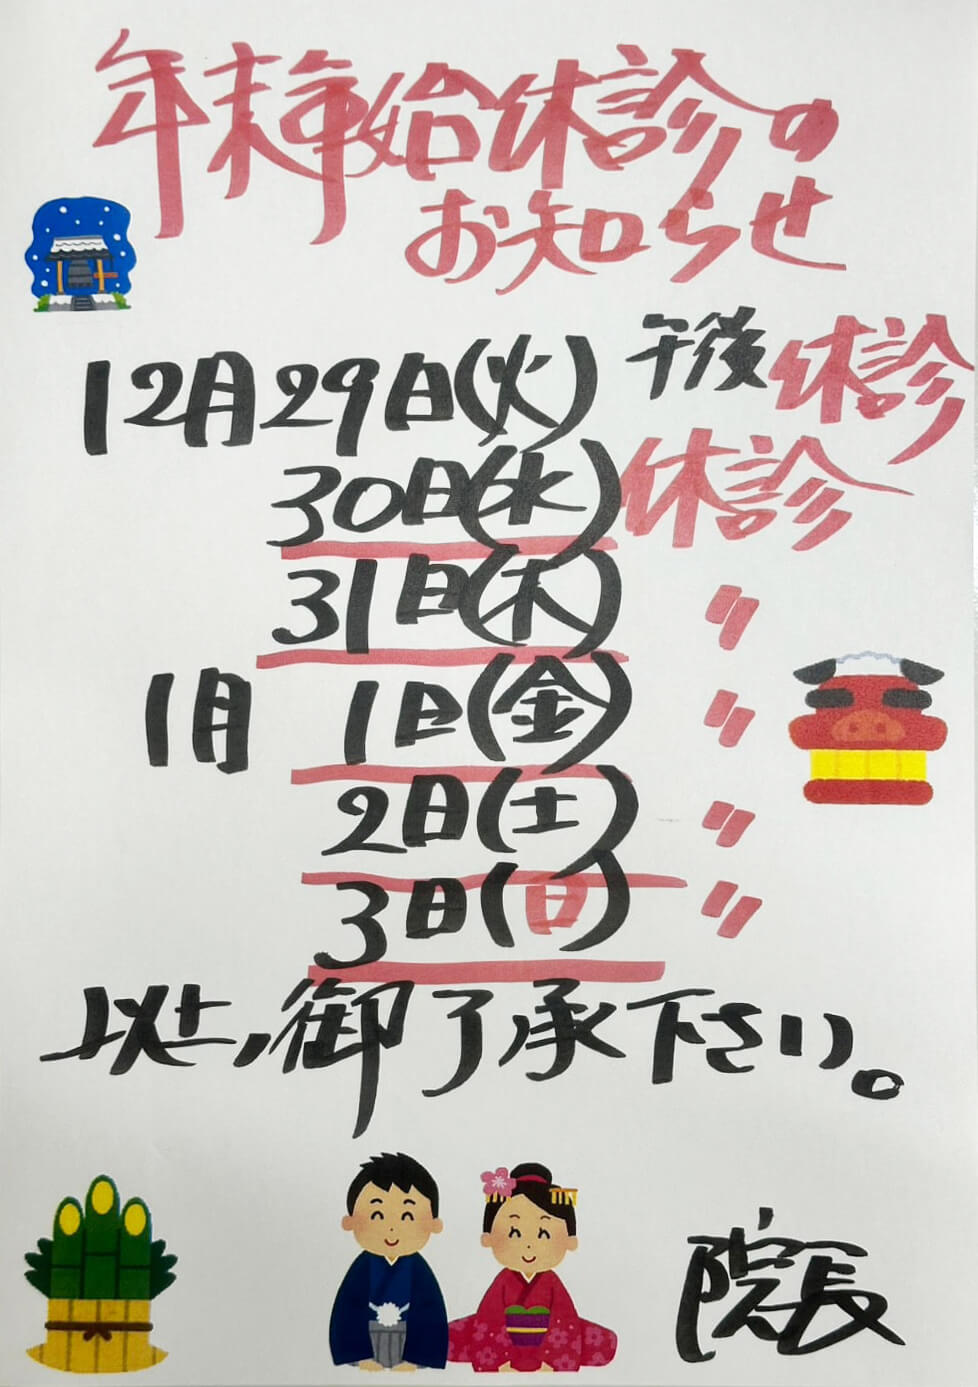 年末年始休診の
お知らせ
12月29日(火) 午後休診
30日(水) 休診
31日(木) 〃
1月 1日(金) 〃
2日(土) 〃
3日(日) 〃
以上,御了承下さい。
院長